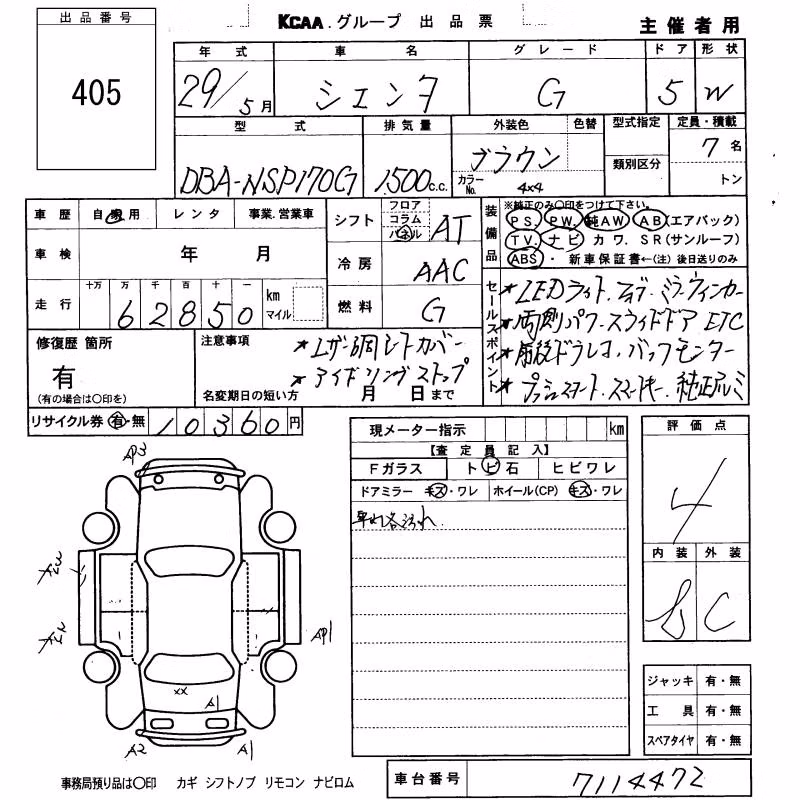 出品番号
405
KCAA.グループ 出品票
主催者用
年式 車名 グレード ドア 形状
29/5月 シエンタ G 5 W
型式 排気量 外装色 色替 型式指定 定員・積載
DBA-NSP170G 1500c.c. ブラウン
カラーNo. 4X4
類別区分
7名
トン
車歴 自家用 レンタ 事業.営業車
車検 年 月
走行 十万 万 千 百 十 一
62850 km マイル
シフト フロア コラム パネル AT
冷房 AAC
燃料 G
装備品
※純正のみ○印をつけて下さい。
PS. PW. 純AW AB(エアバック)
TV. ナビ カワ. SR(サンルーフ)
ABS ・ 新車保証書←(注) 後日送りのみ
セールスポイント
*LEDライト.
*両側パワースライドドア ETC
*前後ドラレコ. バックモニター
*プッシュスタート.スマートキー.純正アルミ
修復歴 箇所
有
(有の場合は○印を)
注意事項
*レザー調シートカバー
*アイドリングストップ
名変期日の短い方 月 日まで
リサイクル券 有・無 10360円
現メーター指示 km
【査定員記入】
Fガラス トビ石 ヒビワレ
ドアミラー キズ・ワレ ホイール(CP) キズ・ワレ
評価点
4
内装 外装
B C
AP3
AP1
XX
A1
A2 A1
ジャッキ 有・無
工具 有・無
スペアタイヤ 有・無
事務局預り品は○印 カギ シフトノブ リモコン ナビロム
車台番号 7114472